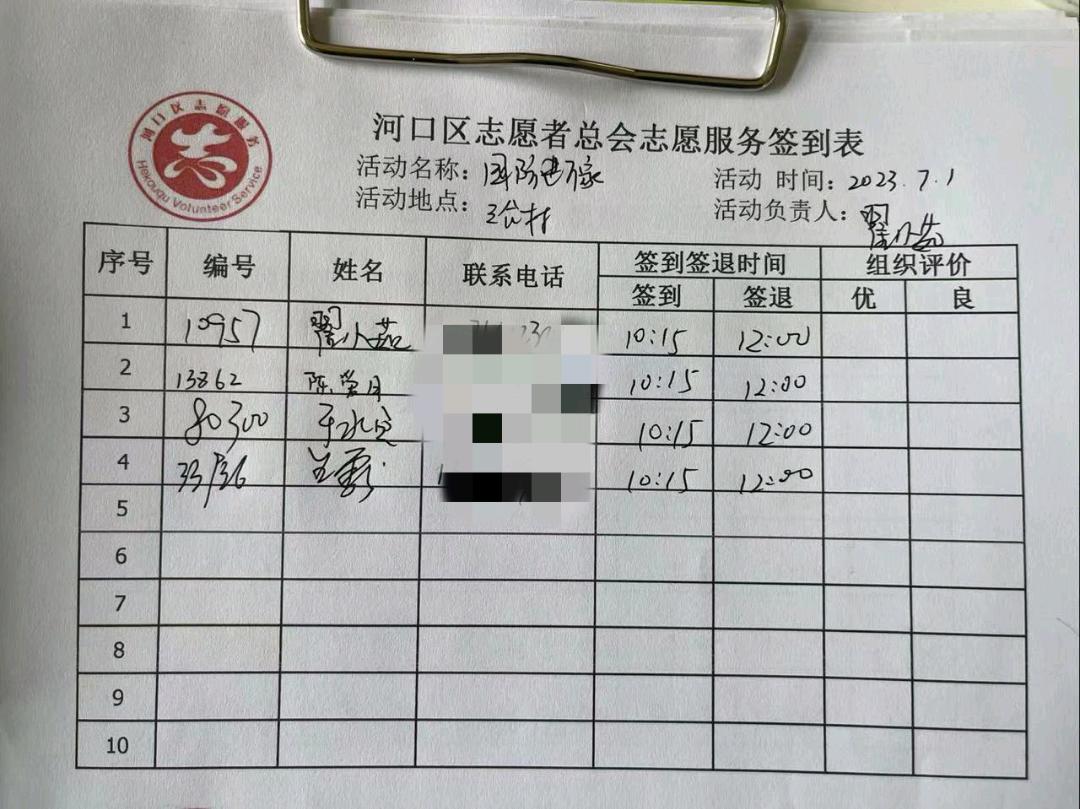 河口区志愿服务
Hekouqu Volunteer Service
河口区志愿者总会志愿服务签到表
活动名称：国防进万家
活动 时间：2023.7.1
活动地点：
活动负责人：翟小茹
序号 编号 姓名 联系电话 签到签退时间 组织评价
签到 签退 优 良
1 10957 翟小茹 10:15 12:00
2 13862 陈学月 10:15 12:00
3 80300 10:15 12:00
4 10:15 12:00
5
6
7
8
9
10